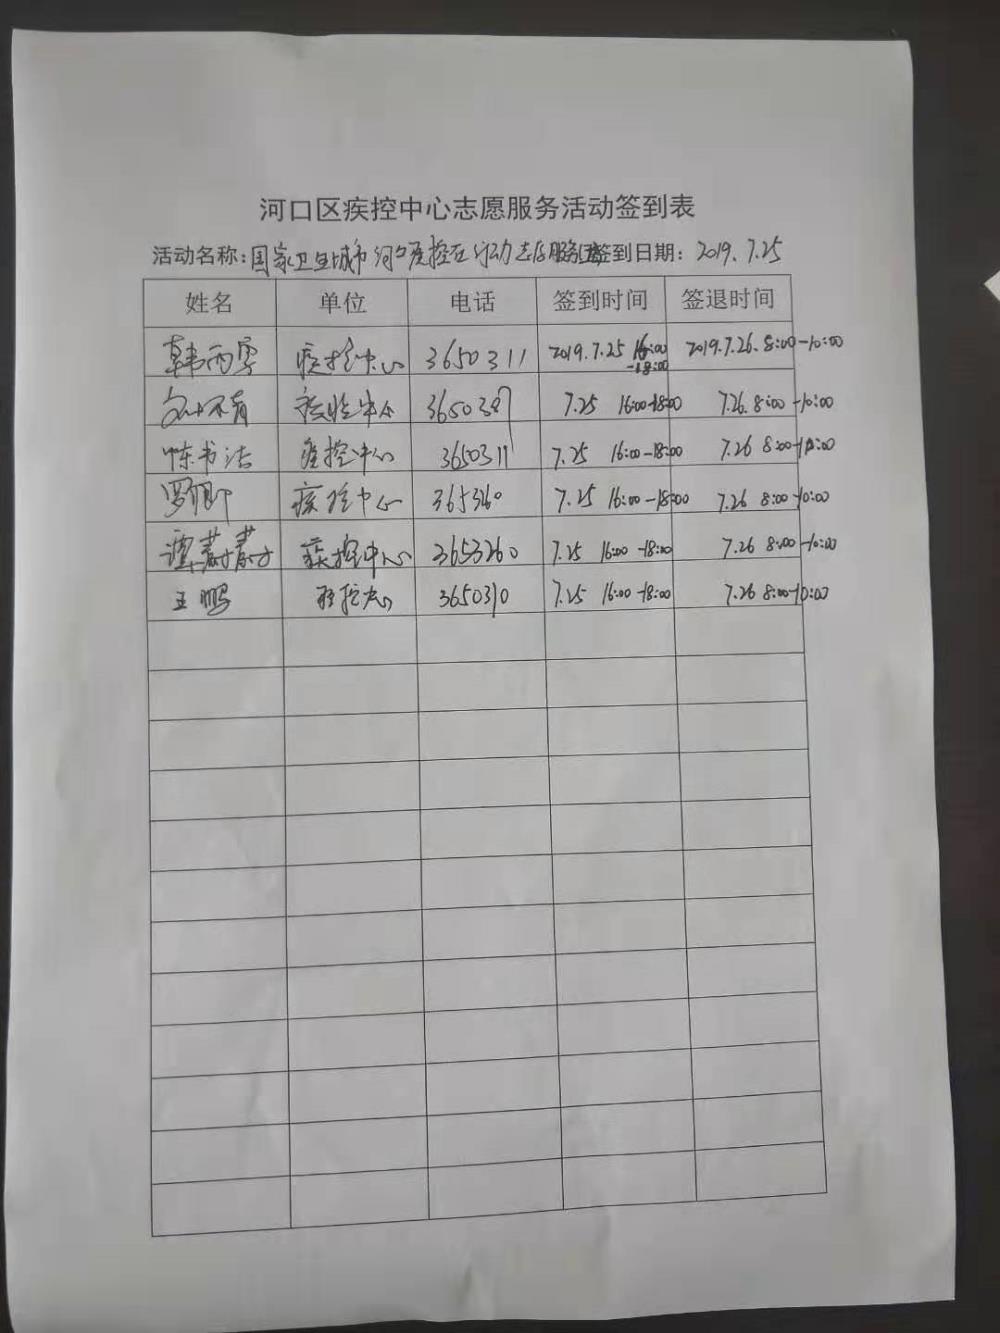 河口区疾控中心志愿服务活动签到表
活动名称:国家卫生城市 河口疾控在行动志愿服务 签到日期: 2019.7.25
姓名 单位 电话 签到时间 签退时间
韩雨雪 疾控中心 3650311 2019.7.25 16:00-18:00 2019.7.26. 8:00-10:00
疾控中心 7.25 16:00-18:00 7.26. 8:00-10:00
陈书法 疾控中心 3650311 7.25 16:00-18:00 7.26 8:00-10:00
疾控中心 7.25 16:00-18:00 7.26 8:00-10:00
谭莉莉 疾控中心 3653260 7.25 16:00-18:00 7.26 8:00-10:00
王鹏 3650310 7.25 16:00-18:00 7.26 8:00-10:00